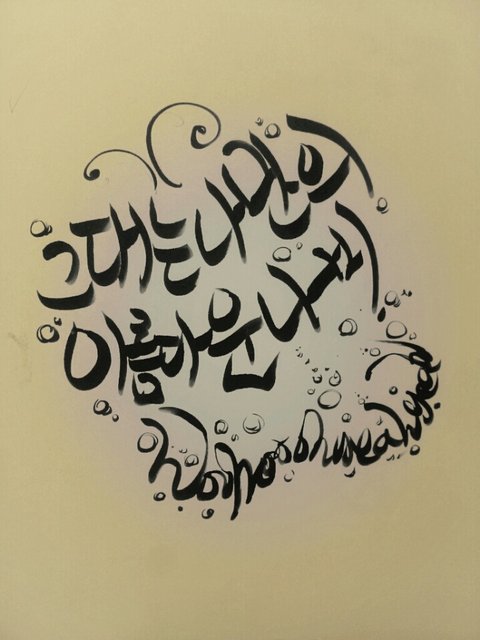 그대는 나만의
아름다운 나비